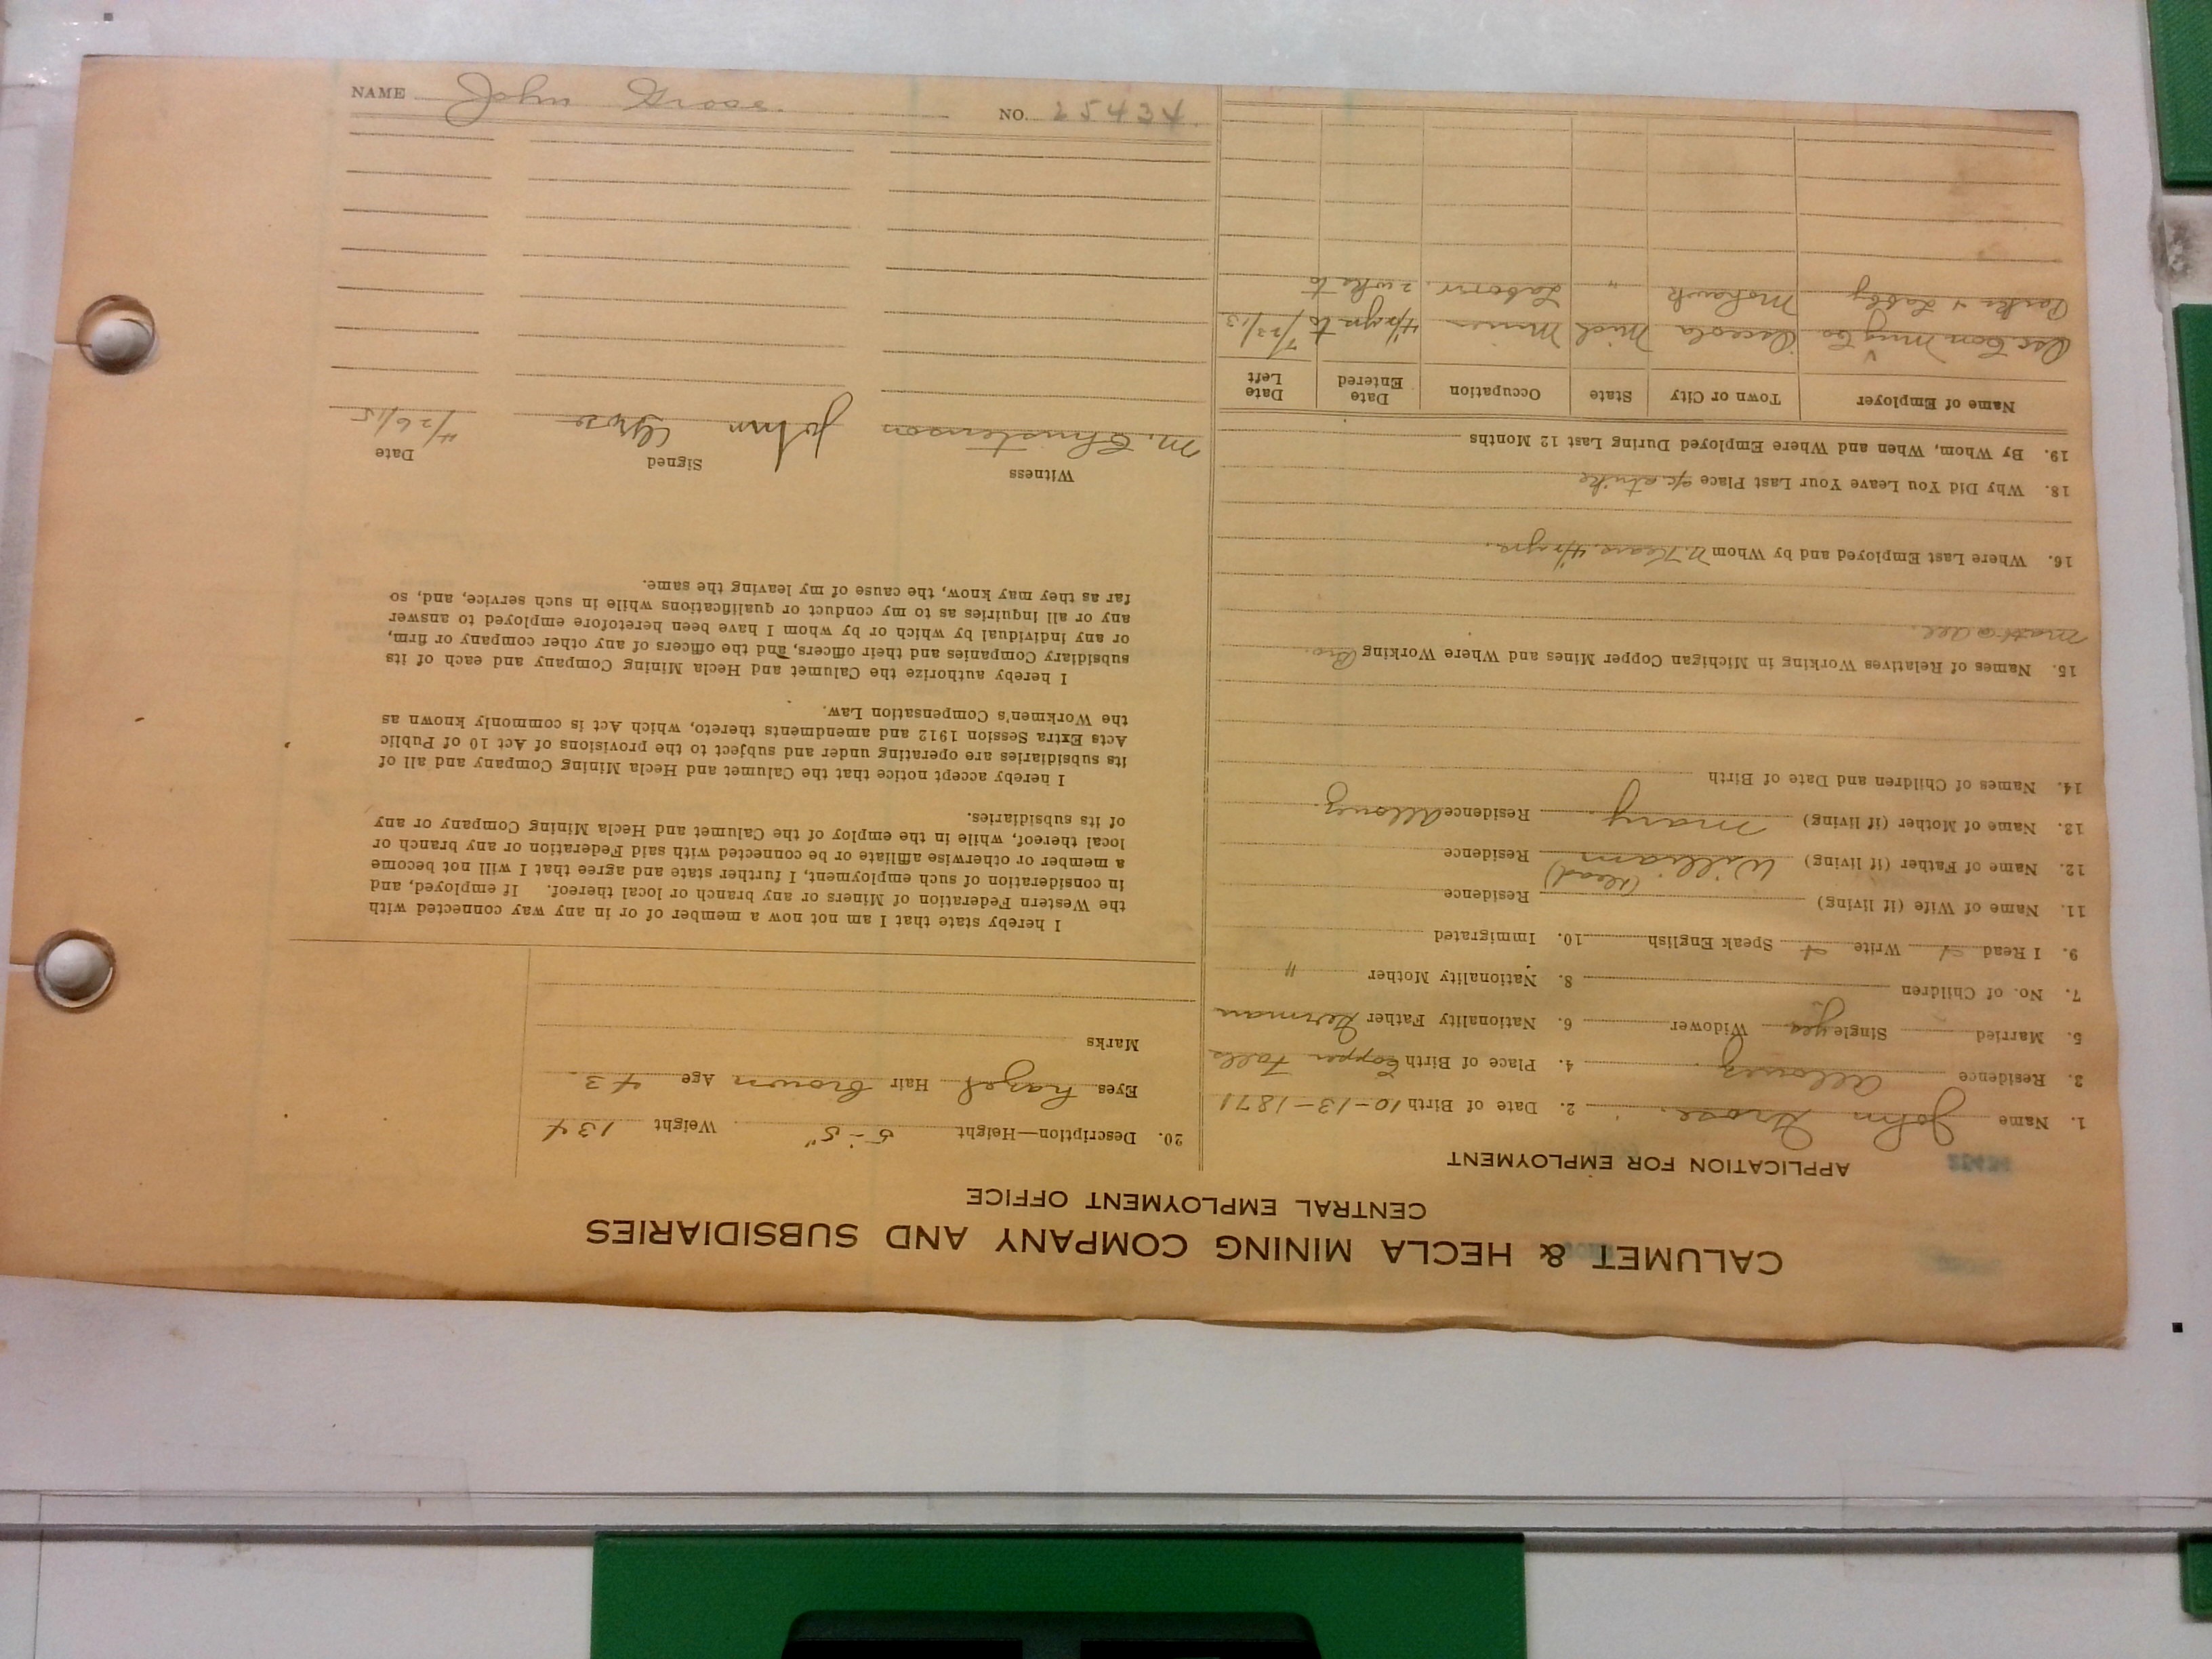 CALUMET & HECLA MINING COMPANY AND SUBSIDIARIES
CENTRAL EMPLOYMENT OFFICE
APPLICATION FOR EMPLOYMENT
1. Name John Grose. 2. Date of Birth 10-13-1871
3. Residence Allouez. 4. Place of Birth Copper Falls
5. Married Single yes Widower 6. Nationality Father German
7. No. of Children 8. Nationality Mother "
9. I Read Write Speak English 10. Immigrated
11. Name of Wife (if living) Residence
12. Name of Father (if living) William (dead) Residence
13. Name of Mother (if living) Mary. Residence Allouez.
14. Names of Children and Date of Birth
15. Names of Relatives Working in Michigan Copper Mines and Where Working Bro.
16. Where Last Employed and by Whom N. Kears. 4 yrs.
18. Why Did You Leave Your Last Place a/c strike
19. By Whom, When and Where Employed During Last 12 Months
Name of Employer Town or City State Occupation Date Entered Date Left
Osc. Con Mng Co Osceola Mich Miner to 7/23/13
Mohawk " Laborer. 2 wks to
20. Description—Height 5-5" Weight 134
Eyes hazel Hair brown Age 43.
Marks
I hereby state that I am not now a member of or in any way connected with
the Western Federation of Miners or any branch or local thereof. If employed, and
in consideration of such employment, I further state and agree that I will not become
a member or otherwise affiliate or be connected with said Federation or any branch or
local thereof, while in the employ of the Calumet and Hecla Mining Company or any
of its subsidiaries.
I hereby accept notice that the Calumet and Hecla Mining Company and all of
its subsidiaries are operating under and subject to the provisions of Act 10 of Public
Acts Extra Session 1912 and amendments thereto, which Act is commonly known as
the Workmen's Compensation Law.
I hereby authorize the Calumet and Hecla Mining Company and each of its
subsidiary Companies and their officers, and the officers of any other company or firm,
or any individual by which or by whom I have been heretofore employed to answer
any or all inquiries as to my conduct or qualifications while in such service, and, so
far as they may know, the cause of my leaving the same.
Witness Signed Date
M. Christenson John Grose 4/26/15
NAME John Grose. NO. 25434.